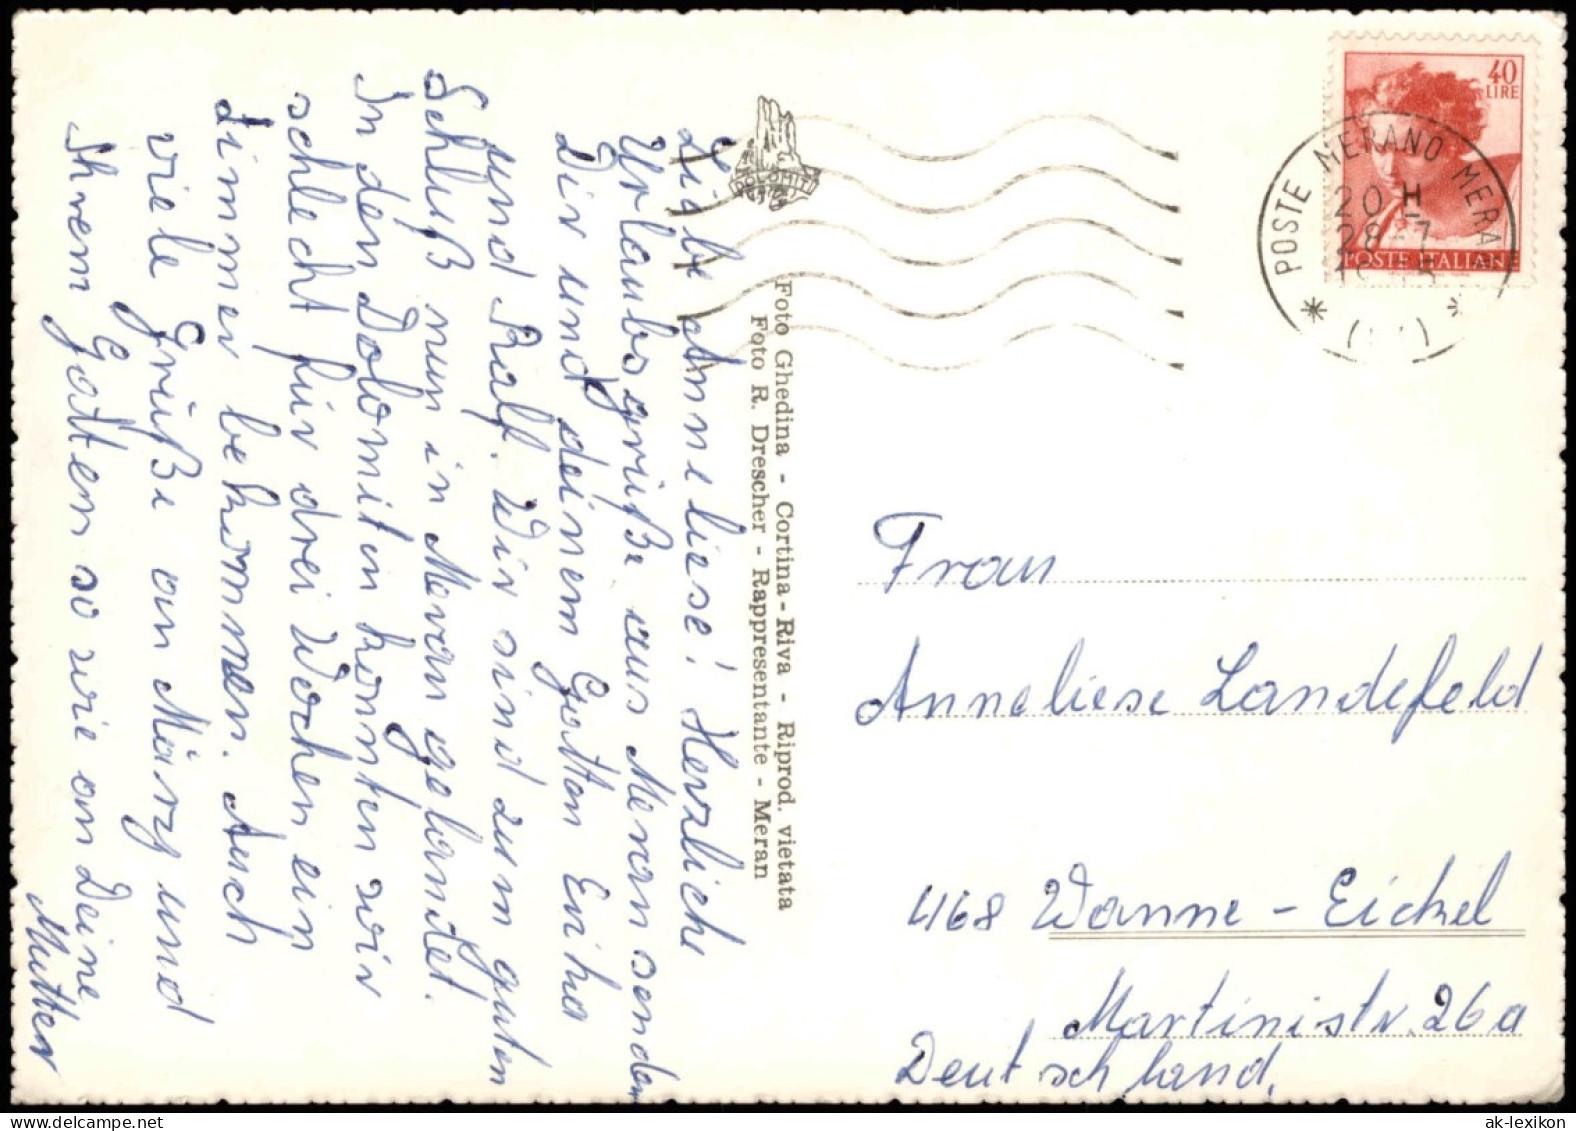 Liebe Anneliese! Herzliche
Urlaubsgrüße aus Meran senden
Dir und deinem Gatten Erika
und Ralf. Wir sind zum guten
Schluß nun in Meran gelandet.
In den Dolomiten konnten wir
schlecht für drei Wochen ein
Zimmer bekommen. Auch
viele Grüße an März und
Ihrem Gatten so wie an Deine
Mutter
DOLOMITI
Foto Ghedina - Cortina-Riva - Riprod. vietata
Foto R. Drescher - Rappresentante - Meran
40
LIRE
POSTE ITALIANE
POSTE MERANO MERA
20 H
28-7
Frau
Anneliese Landefeld
468 Wanne-Eickel
Martinistr. 26a
Deutschland.
ak-lexikon